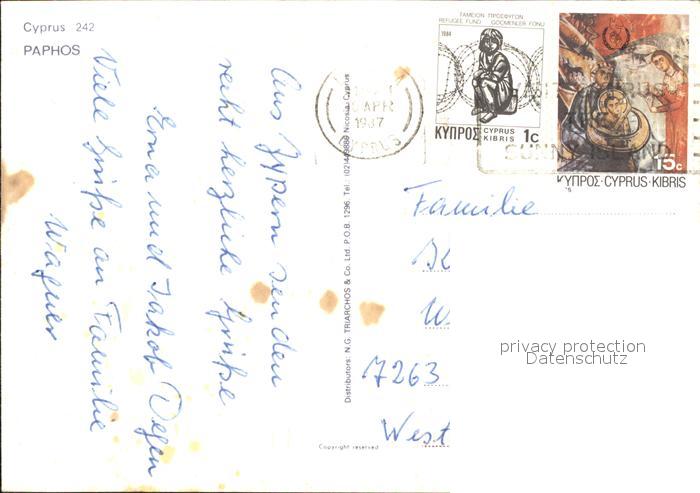 Cyprus 242
PAPHOS
Aus Zypern senden
recht herzliche Grüße
Erna und Jakob Degen
Viele Grüße an Familie
Wagner
Distributors: N.G. TRIARCHOS & Co. Ltd. P.O.B. 1296. Tel. (02)449889 Nicosia/Cyprus
Copyright reserved
APR
1987
CYPRUS
ΤΑΜΕΙΟΝ ΠΡΟΣΦΥΓΩΝ
REFUGEE FUND GÖÇMENLER FONU
1984
ΚΥΠΡΟΣ CYPRUS KIBRIS 1c
VISIT CYPRUS
SUNNY ISLAND
15c
ΚΥΠΡΟΣ·CYPRUS·KIBRIS
Familie
7263
West
privacy protection
Datenschutz